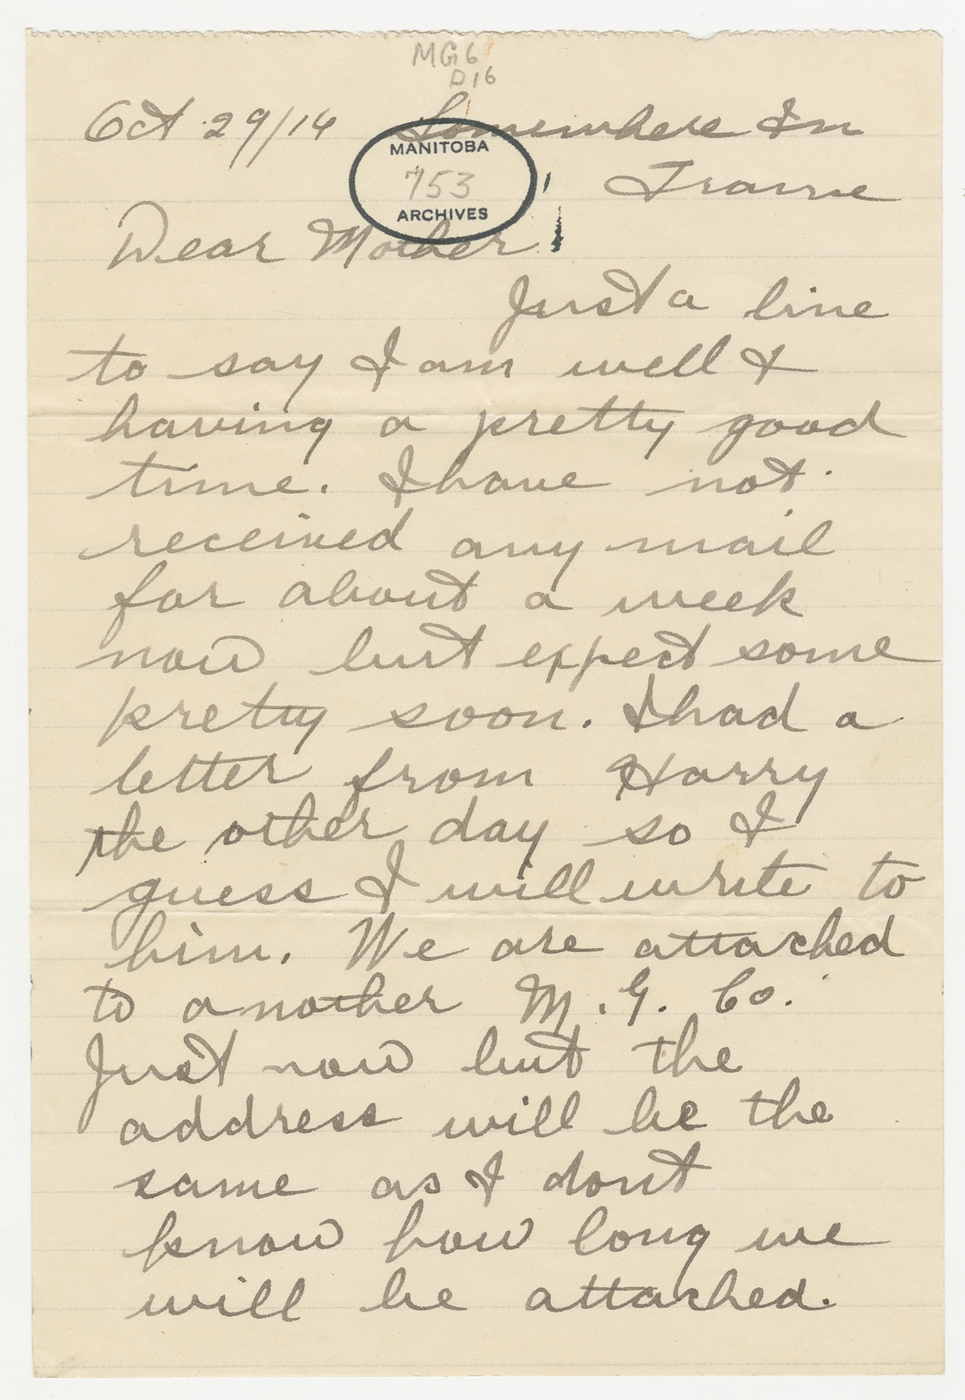 MG6
D16
Oct 29/16 Somewhere In
MANITOBA
753
ARCHIVES
France
Dear Mother
Just a line
to say I am well &
having a pretty good
time. I have not
received any mail
for about a week
now but expect some
pretty soon. I had a
letter from Harry
the other day so I
guess I will write to
him. We are attached
to another M.G. Co.
Just now but the
address will be the
same as I dont
know how long we
will be attached.